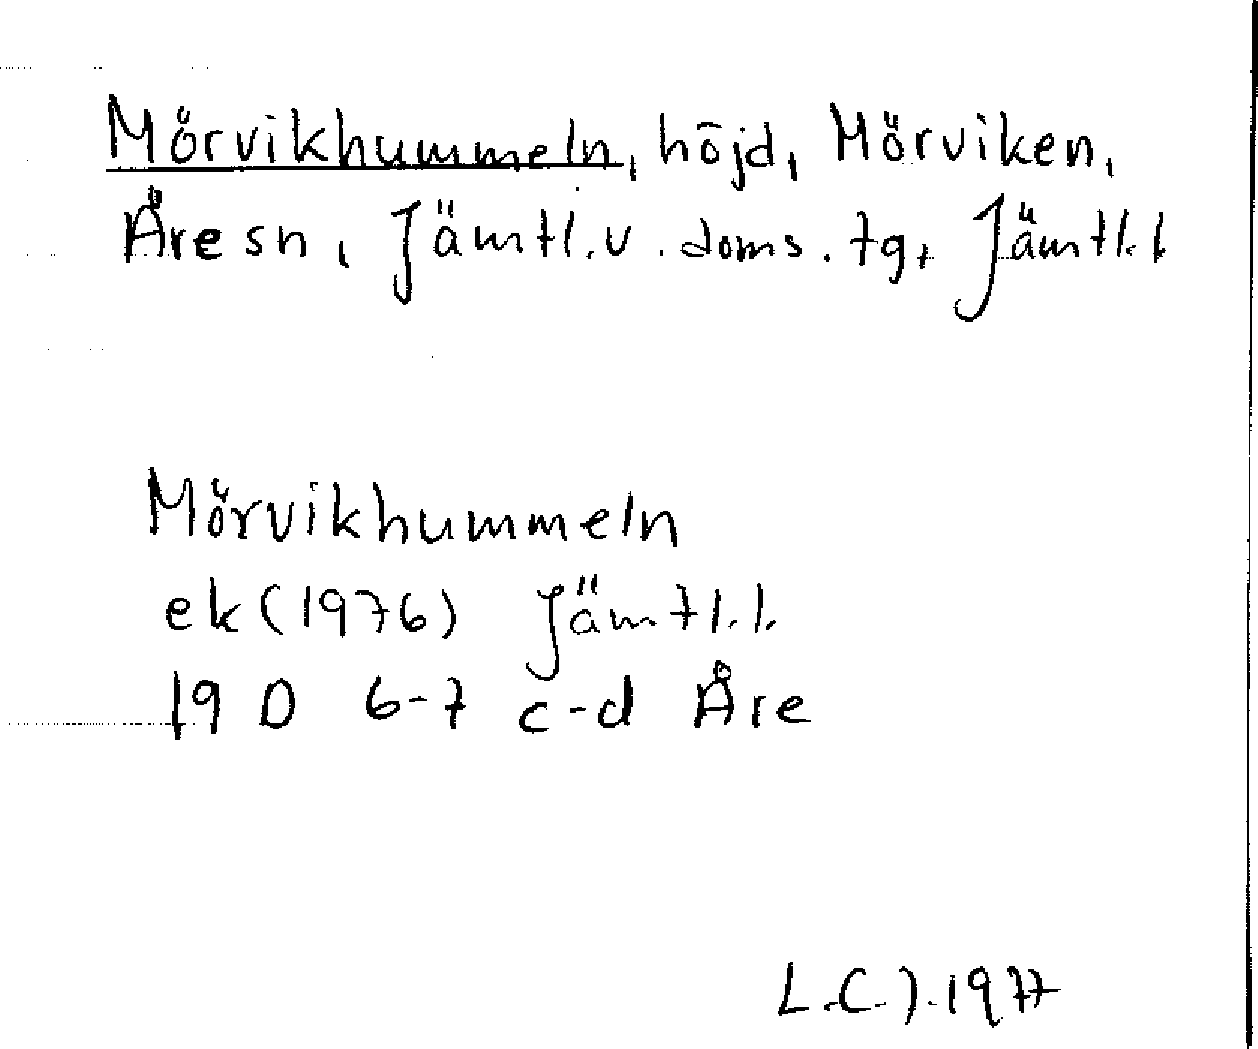 Mörvikhummeln, höjd, Mörviken,
Åre sn, Jämtl.v.doms.tg, Jämtl.l
Mörvikhummeln
ek (1976) Jämtl.l.
19 D 6-7 c-d Åre
L.C.J.1977